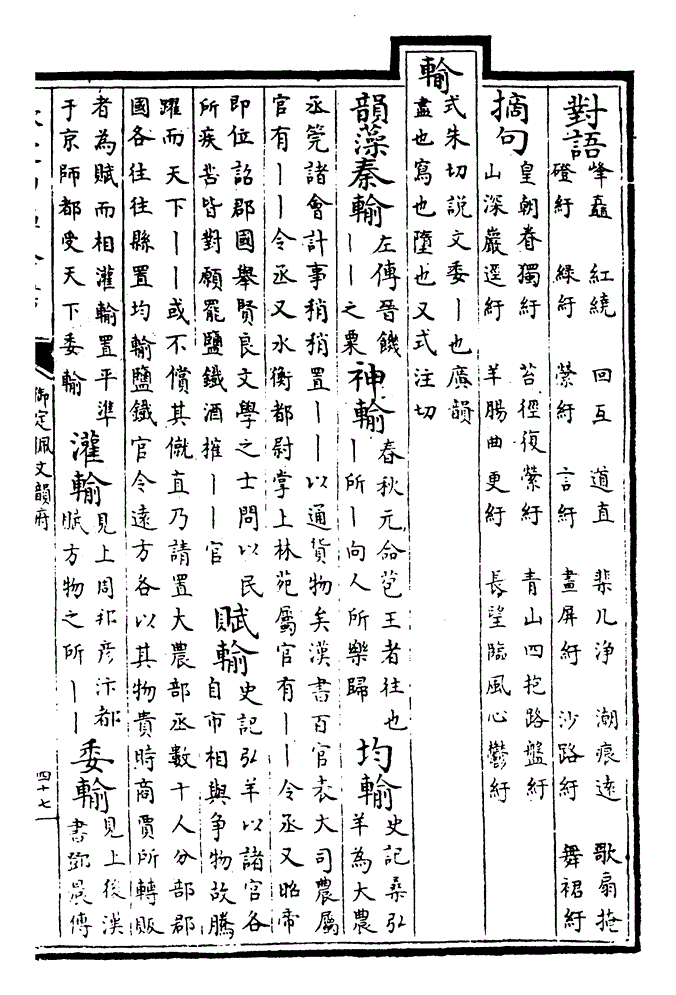 對語
峰矗　紅繞　回互　道直　棐几淨　潮痕遠　歌扇掩
磴紆　綠紆　縈紆　言紆　畫屏紆　沙路紆　舞裙紆
摘句
皇朝眷獨紆　苔徑復縈紆　青山四抱路盤紆
山深巖逕紆　羊腸曲更紆　長望臨風心鬱紆
輸
式朱切說文委丨也廣韻
盡也寫也墮也又式注切
韻藻
秦輸
左傳晉饑
丨丨之粟
神輸
春秋元命苞王者往也
丨所丨向人所樂歸
均輸
史記桑弘
羊為大農
丞筦諸會計事稍稍置丨丨以通貨物矣漢書百官表大司農屬
官有丨丨令丞又水衡都尉掌上林苑屬官有丨丨令丞又昭帝
即位詔郡國舉賢良文學之士問以民
所疾苦皆對願罷鹽鐵酒榷丨丨官
賦輸
史記弘羊以諸官各
自市相與争物故騰
躍而天下丨丨或不償其僦直乃請置大農部丞數十人分部郡
國各往往縣置均輸鹽鐵官令遠方各以其物貴時商賈所轉販
者為賦而相灌輸置平準
于京師都受天下委輸
灌輸
見上周邦彦汴都
賦方物之所丨丨
委輸
見上後漢
書鄧晨傳
御定佩文韻府
四十七